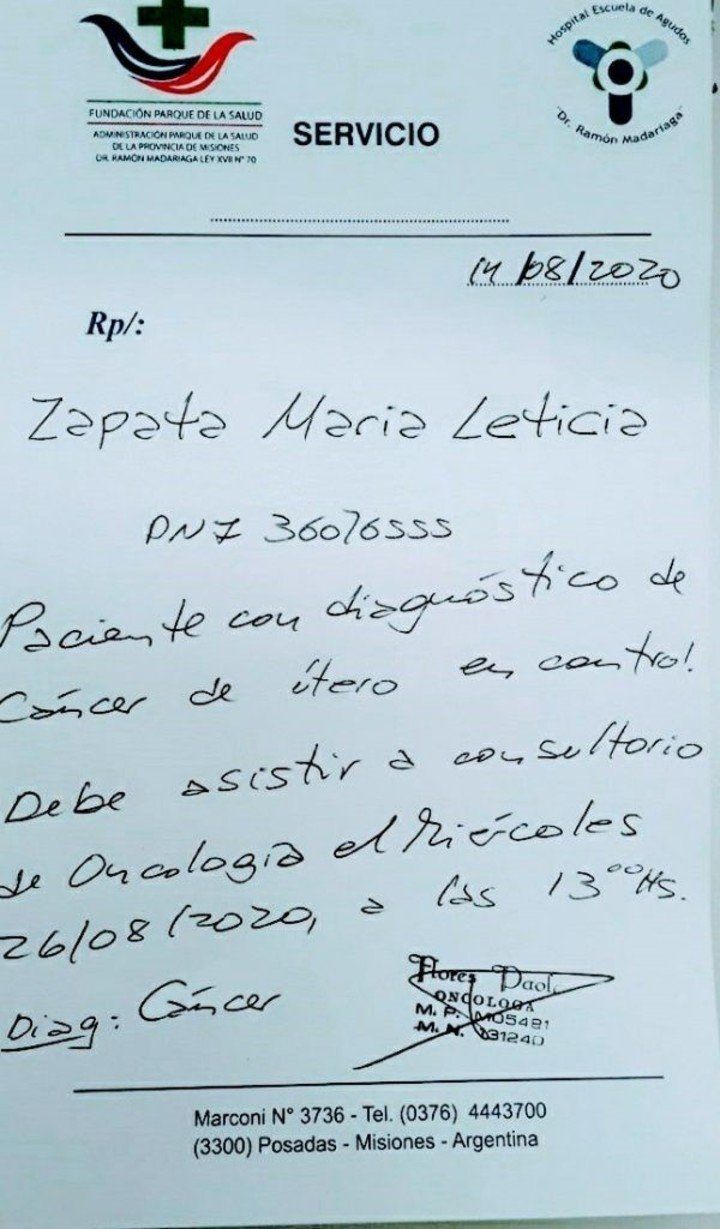 FUNDACIÓN PARQUE DE LA SALUD
ADMINISTRACIÓN PARQUE DE LA SALUD
DE LA PROVINCIA DE MISIONES
DR. RAMÓN MADARIAGA LEY XVII N° 70
SERVICIO
Hospital Escuela de Agudos
"Dr. Ramón Madariaga"
14/08/2020
Rp/:
Zapata Maria Leticia
DNI 36076555
Paciente con diagnóstico de
Cáncer de útero en control.
Debe asistir a consultorio
de Oncología el Miércoles
26/08/2020, a las 13°°Hs.
Diag: Cáncer
Flores Paola
ONCOLOGA
M. P. M05491
M. N. 131240
Marconi N° 3736 - Tel. (0376) 4443700
(3300) Posadas - Misiones - Argentina